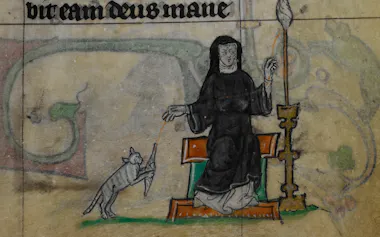 vit eam deus mane